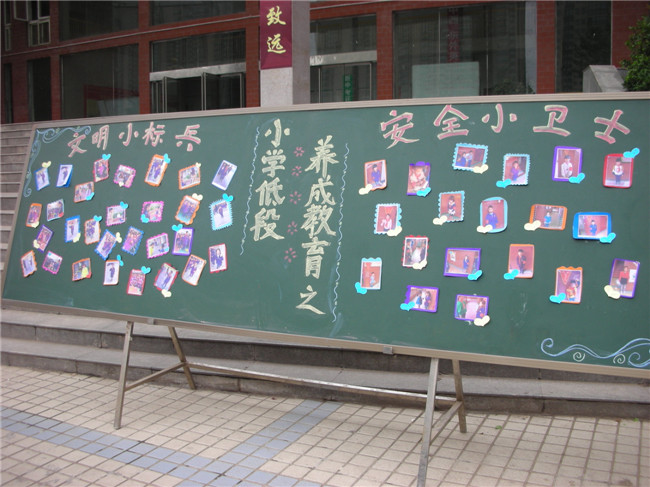 致远
文明小标兵
养成教育之
小学低段
安全小卫士